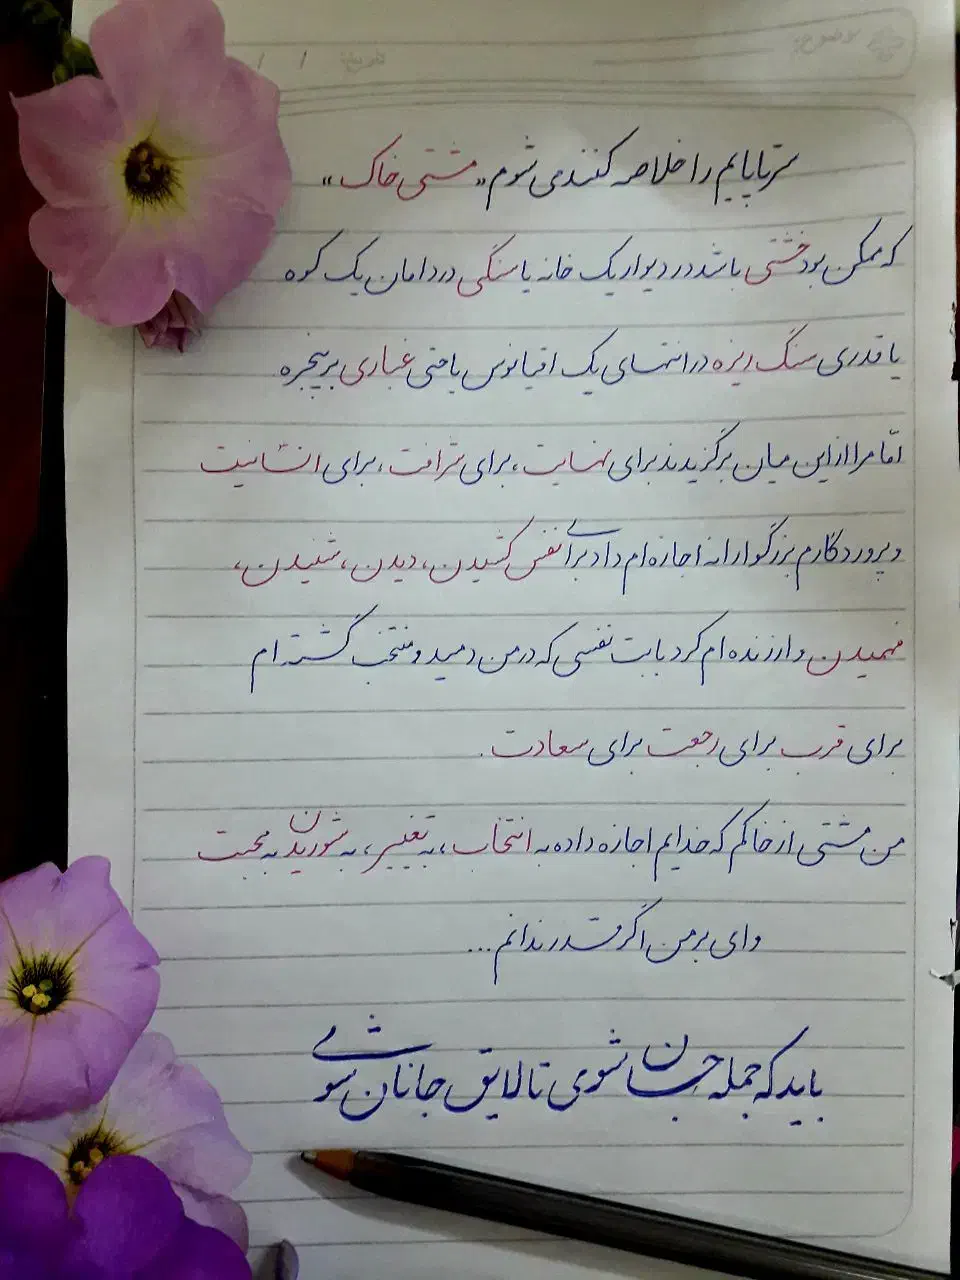 موضوع:
تاریخ: / /
سرتاپایم را خلاصه کنند می شوم «مشتی خاک»
که ممکن بود خشتی باشد در دیوار یک خانه یا سنگی در دامان یک کوه
یا قدری سنگ ریزه در انتهای یک اقیانوس یا حتی غباری بر پنجره
اما مرا از این میان برگزیدند برای نهایت، برای شرافت، برای انسانیت
و پروردگارم بزرگوارانه اجازه ام داد برای نفس کشیدن، دیدن، شنیدن،
فهمیدن و ارزنده ام کرد بابت نفسی که در من دمید و منتخب گشته ام
برای قرب برای رجعت برای سعادت.
من مشتی از خاکم که خدایم اجازه داده به انتخاب، به تغییر، به شوریدن به محبت
وای بر من اگر قدر ندانم...
باید که جمله جان شوی تا لایق جانان شوی